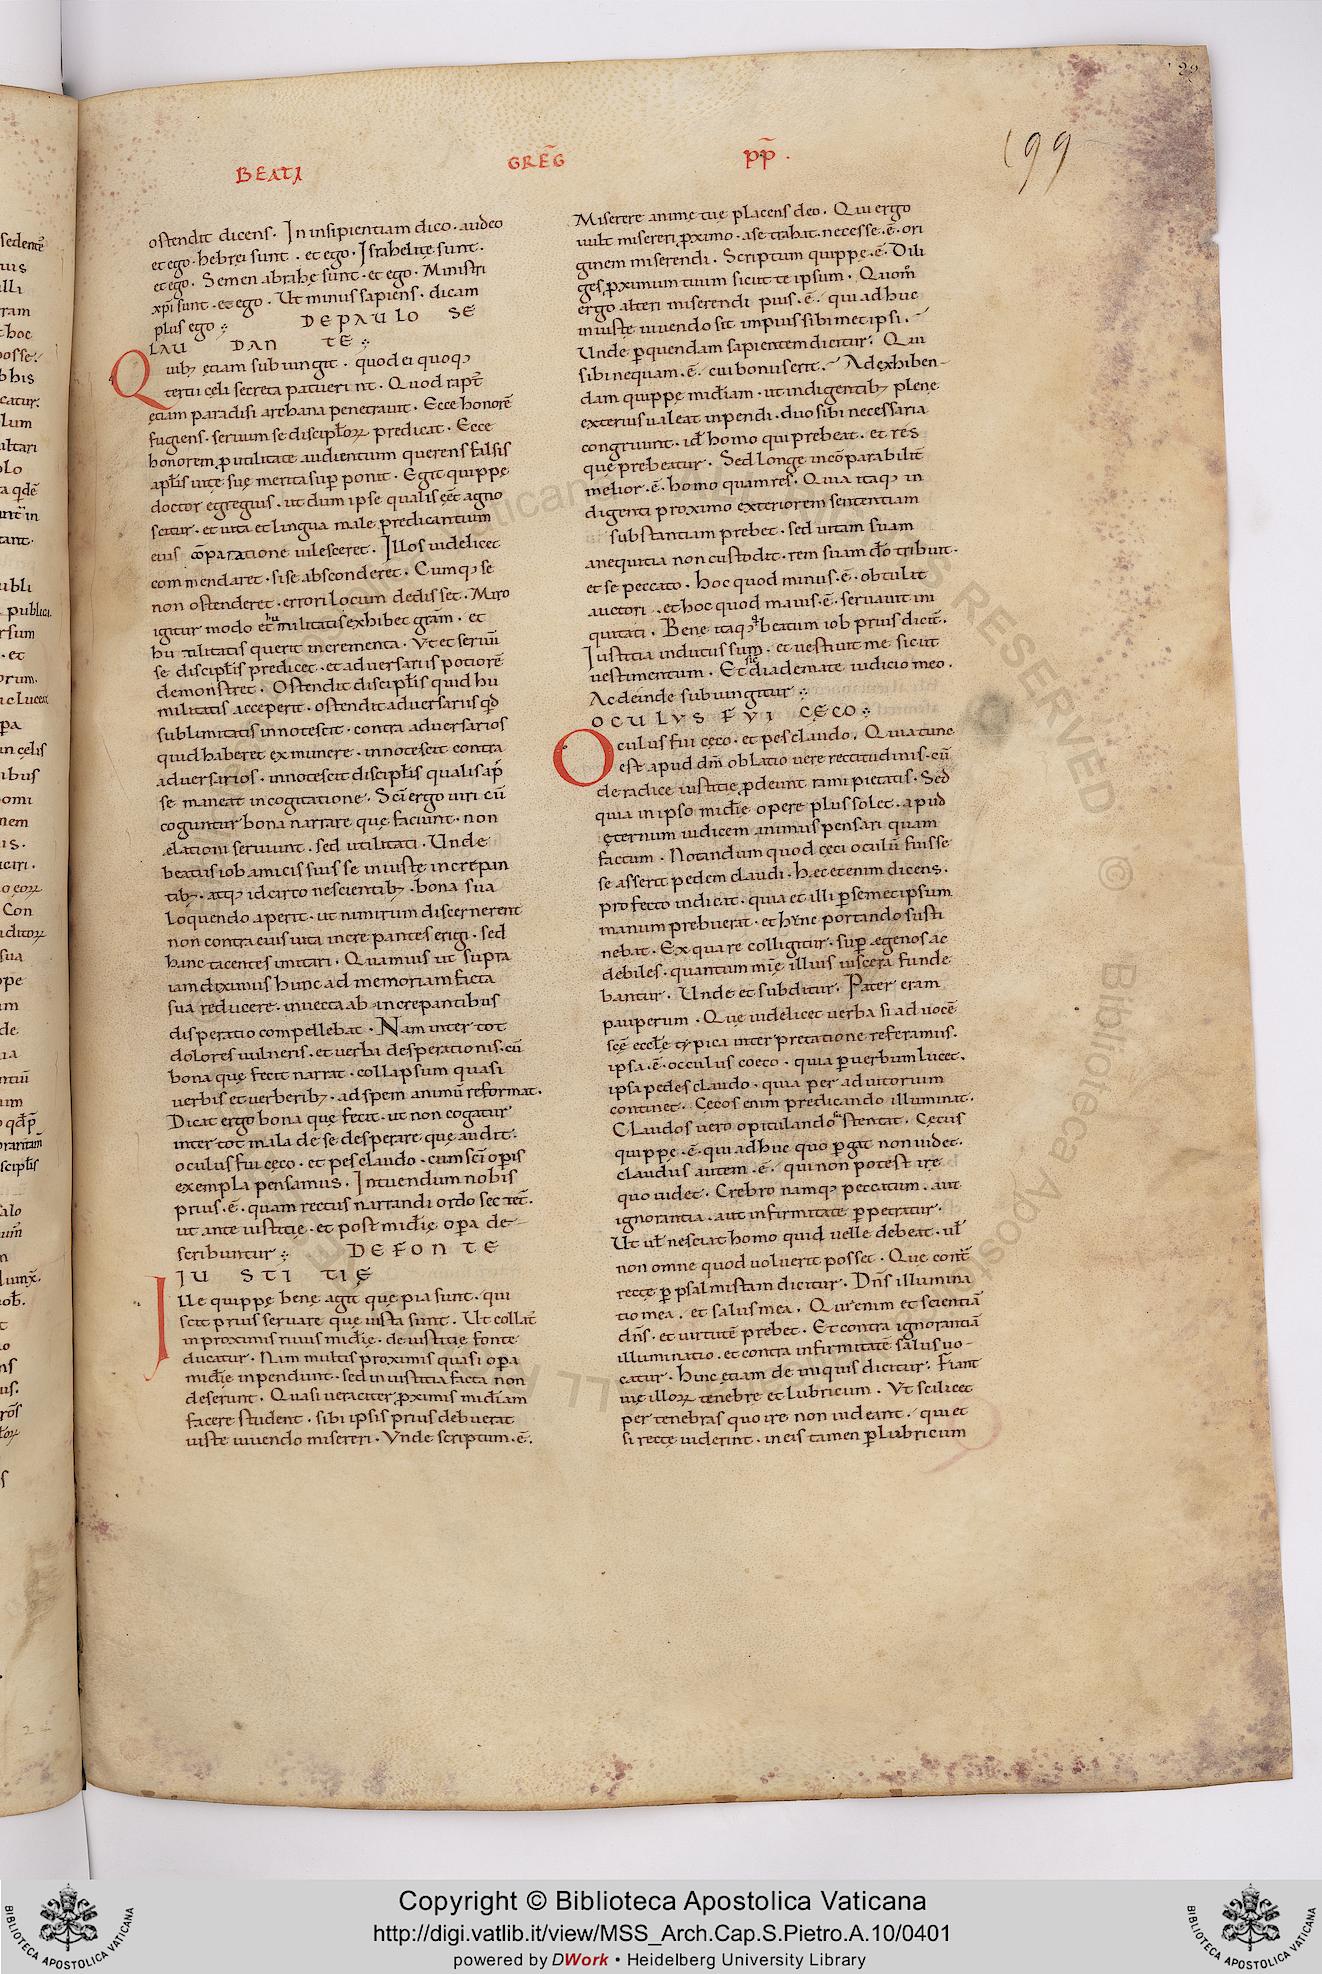 BEATI GREḠ PP̄.
199
ostendit dicens. In insipientiam dico. audeo
et ego. hebrei sunt. et ego. Israhelitę sunt.
et ego. Semen abrahę sunt. et ego. Ministri
xp̄i sunt. et ego. Ut minus sapiens. dicam
plus ego. DE PAULO SE
LAU DAN TE.
Quib; etiam subiungit. quod ei quoq;
tertii cęli secreta patuerint. Quod rapt̄
etiam paradisi archana penetravit. Ecce honorē
fugiens. seruum se discipl̄oꝝ predicat. Ecce
honorem ꝓ utilitate audientium querens falsis
apl̄is uitę suę merita suꝑ ponit. Egit quippę
doctor egregius. ut dum ipse qualis eēt agno
scitur. et uita et lingua male predicantium
eius cōparatione uilesceret. Illos uidelicet
commendaret. si se absconderet. Cumq; se
non ostenderet. errori locum dedisset. Miro
igitur modo et humilitatis exhibet gr̄am. et
hu tilitatis querit incrementa. Ut et seruū
se discipl̄is predicet. et aduersariis potiorē
demonstret. Ostendit discipl̄is quid hu
militatis acceperit. ostendit aduersariis qd̄
sublimitatis innotescit. contra aduersarios
quid haberet ex munere. innotescit contra
aduersarios. innotescit discipl̄is qualis ap̄
se maneat in cogitatione. Sc̄i ergo uiri cū
coguntur bona narrare quę faciunt. non
elationi seruiunt. sed utilitati. Unde
beatus iob amicis suis se iniuste increpan
tib;. atq; idcirco nescientib;. bona sua
loquendo aperit. ut nimirum discernerent
non contra eius uita increpantes erigi. sed
hinc tacentes imitari. Quamuis ut supra
iam diximus hunc ad memoriam facta
sua reducere. inuecta ab increpantibus
disperatio compellebat. Nam inter tot
dolores uulneris. et uerba desperationis. cū
bona quę fecit narrat. collapsum quasi
uerbis et uerberib;. ad spem animū reformat.
Dicat ergo bona quę fecit. ut non cogatur
inter tot mala de se desperare quę audit.
oculus fui cęco. et pes claudo. cum sc̄i oꝑis
exempla pensamus. Intuendum nobis
prius. ē. quam rectus narrandi ordo sec̄ tet̄.
ut ante iustitię. et post mid̄ię oꝑa de-
scribuntur. DE FON TE
IU STI TIĘ
Ille quippę bene agit quę pia sunt. qui
scit prius seruare quę iusta sunt. Ut collat̄
in proximis riuus mid̄ię. de iustitię fonte
ducatur. Nam multis proximis quasi oꝑa
mid̄ie inpendunt. sed iniustitia facta non
deserunt. Quasi ueraciter ꝓximis mid̄iam
facere student. sibi ipsis prius debuerat
iuste uiuendo misereri. Unde scriptum. ē.
Miserere animę tuę placens deo. Qui ergo
uult misereri ꝓximo. a se trahat. necesse. ē. ori
ginem miserendi. Scriptum quippę. ē. Dili
ges ꝓximum tuum sicut te ipsum. Quom̄
ergo alteri miserendi pius. ē. qui adhuc
iniuste uiuendo fit impius sibimet ipsi.
Unde ꝑ quendam sapientem dicitur. Qui
sibi nequam. ē. cui bonus erit. Ad exhiben-
dam quippę mid̄iam. ut indigentib; plene
exterius ualeat inpendi. duo sibi necessaria
congruunt. id̄ homo qui prebeat. et res
quę prebeatur. Sed longe incōparabilit̄
melior. ē. homo quam res. Quia itaq; in
digenti proximo exteriorem sententiam
substantiam prebet. sed uitam suam
a nequitia non custodit. rem suam dō tribuit.
et se peccato. hoc quod minus. ē. obtulit
auctori. et hoc quod maius. ē. seruauit ini
quitati. Bene itaq; beatum iob prius dicit̄.
Iustitia indutus sum. et uestiuit me sicut
uestimentum. Et sic diademate iudicio meo.
Ac deinde subiungitur.
OCULVS FVI CĘCO.
Oculus fui cęco. et pes claudo. Quia tunc
est apud dn̄m oblatio uere rectitudinis. cū
de radice iustitię ꝓdeunt rami pietatis. Sed
quia in ipso mid̄ie opere plus solet. apud
ęternum iudicem animus pensari quam
factum. Notandum quod cęci oculū fuisse
se asserit pedem claudi. hec etenim dicens.
profecto indicat. quia et illi ꝑ semetipsum
manum prebuerat. et hunc portando susti
nebat. Ex qua re colligitur. suꝑ egenos ac
debiles. quantum mīę illius uiscera funde
bantur. Unde et subditur. Pater eram
pauperum. Quę uidelicet uerba si ad uocē
scę̄ eccl̄ę typica interpretatione referamus.
ipsa. ē. occulus coeco. quia ꝑ uerbum lucet.
ipsa pedes claudo. quia per adiutorium
continet. Cęcos enim predicando illuminat.
Claudos uero opitulando sustentat. Cęcus
quippę. ē. qui adhuc quo ꝑgat non uidet.
claudus autem. ē. qui non potest ire
quo uidet. Crebro namq; peccatum. aut
ignorantia. aut infirmitate ꝑpetratur.
Ut ul̄ nesciat homo quid uelle debeat. ul̄
non omne quod uoluerit posset. Que cont̄
rectę ꝑ psalmistam dicitur. Dn̄s illumina
tio mea. et salus mea. Qui enim et scientiā
dn̄s. et uirtutē prebet. Et contra ignorantiā
illuminatio. et contra infirmitatē salus uo-
catur. Hinc etiam de iniquis dicitur. Fiant
uię illoꝝ tenebrę et lubricum. Ut scilicet
per tenebras quo ire non uideant. qui et
si rectę uiderint. in eis tamen ꝑ lubricum
Copyright © Biblioteca Apostolica Vaticana
http://digi.vatlib.it/view/MSS_Arch.Cap.S.Pietro.A.10/0401
powered by DWork • Heidelberg University Library
BIBLIOTECA APOSTOLICA VATICANA
BIBLIOTECA APOSTOLICA VATICANA